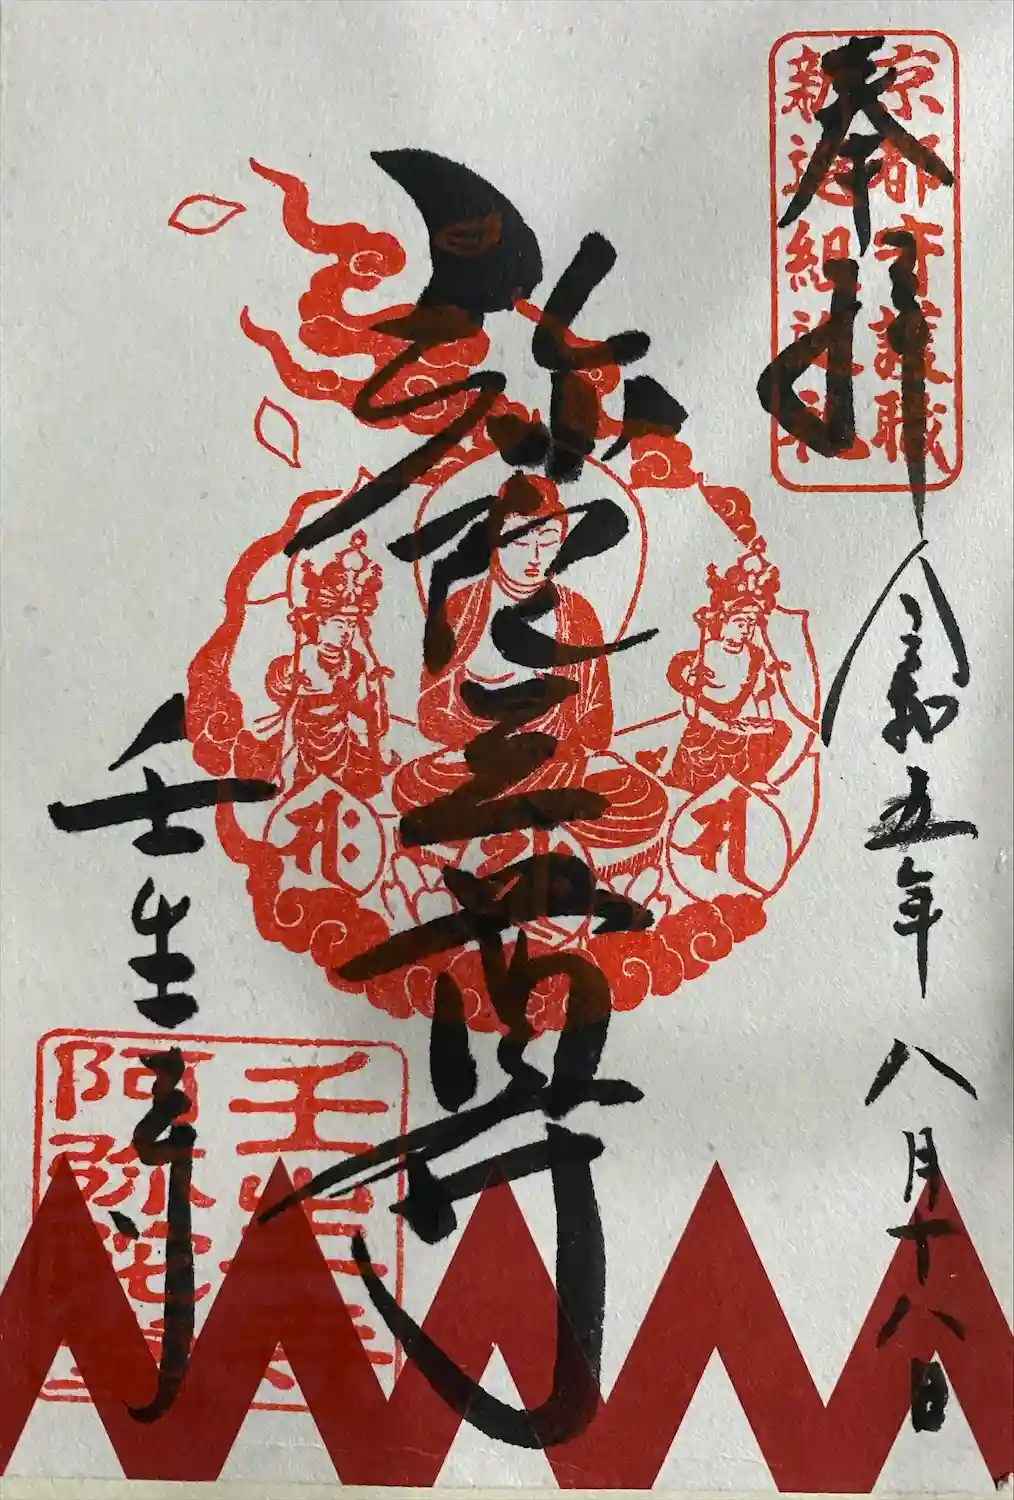 奉拝
京都守護職
新選組
令和五年八月十八日
弥陀三尊
壬生寺
壬生寺
阿弥陀堂